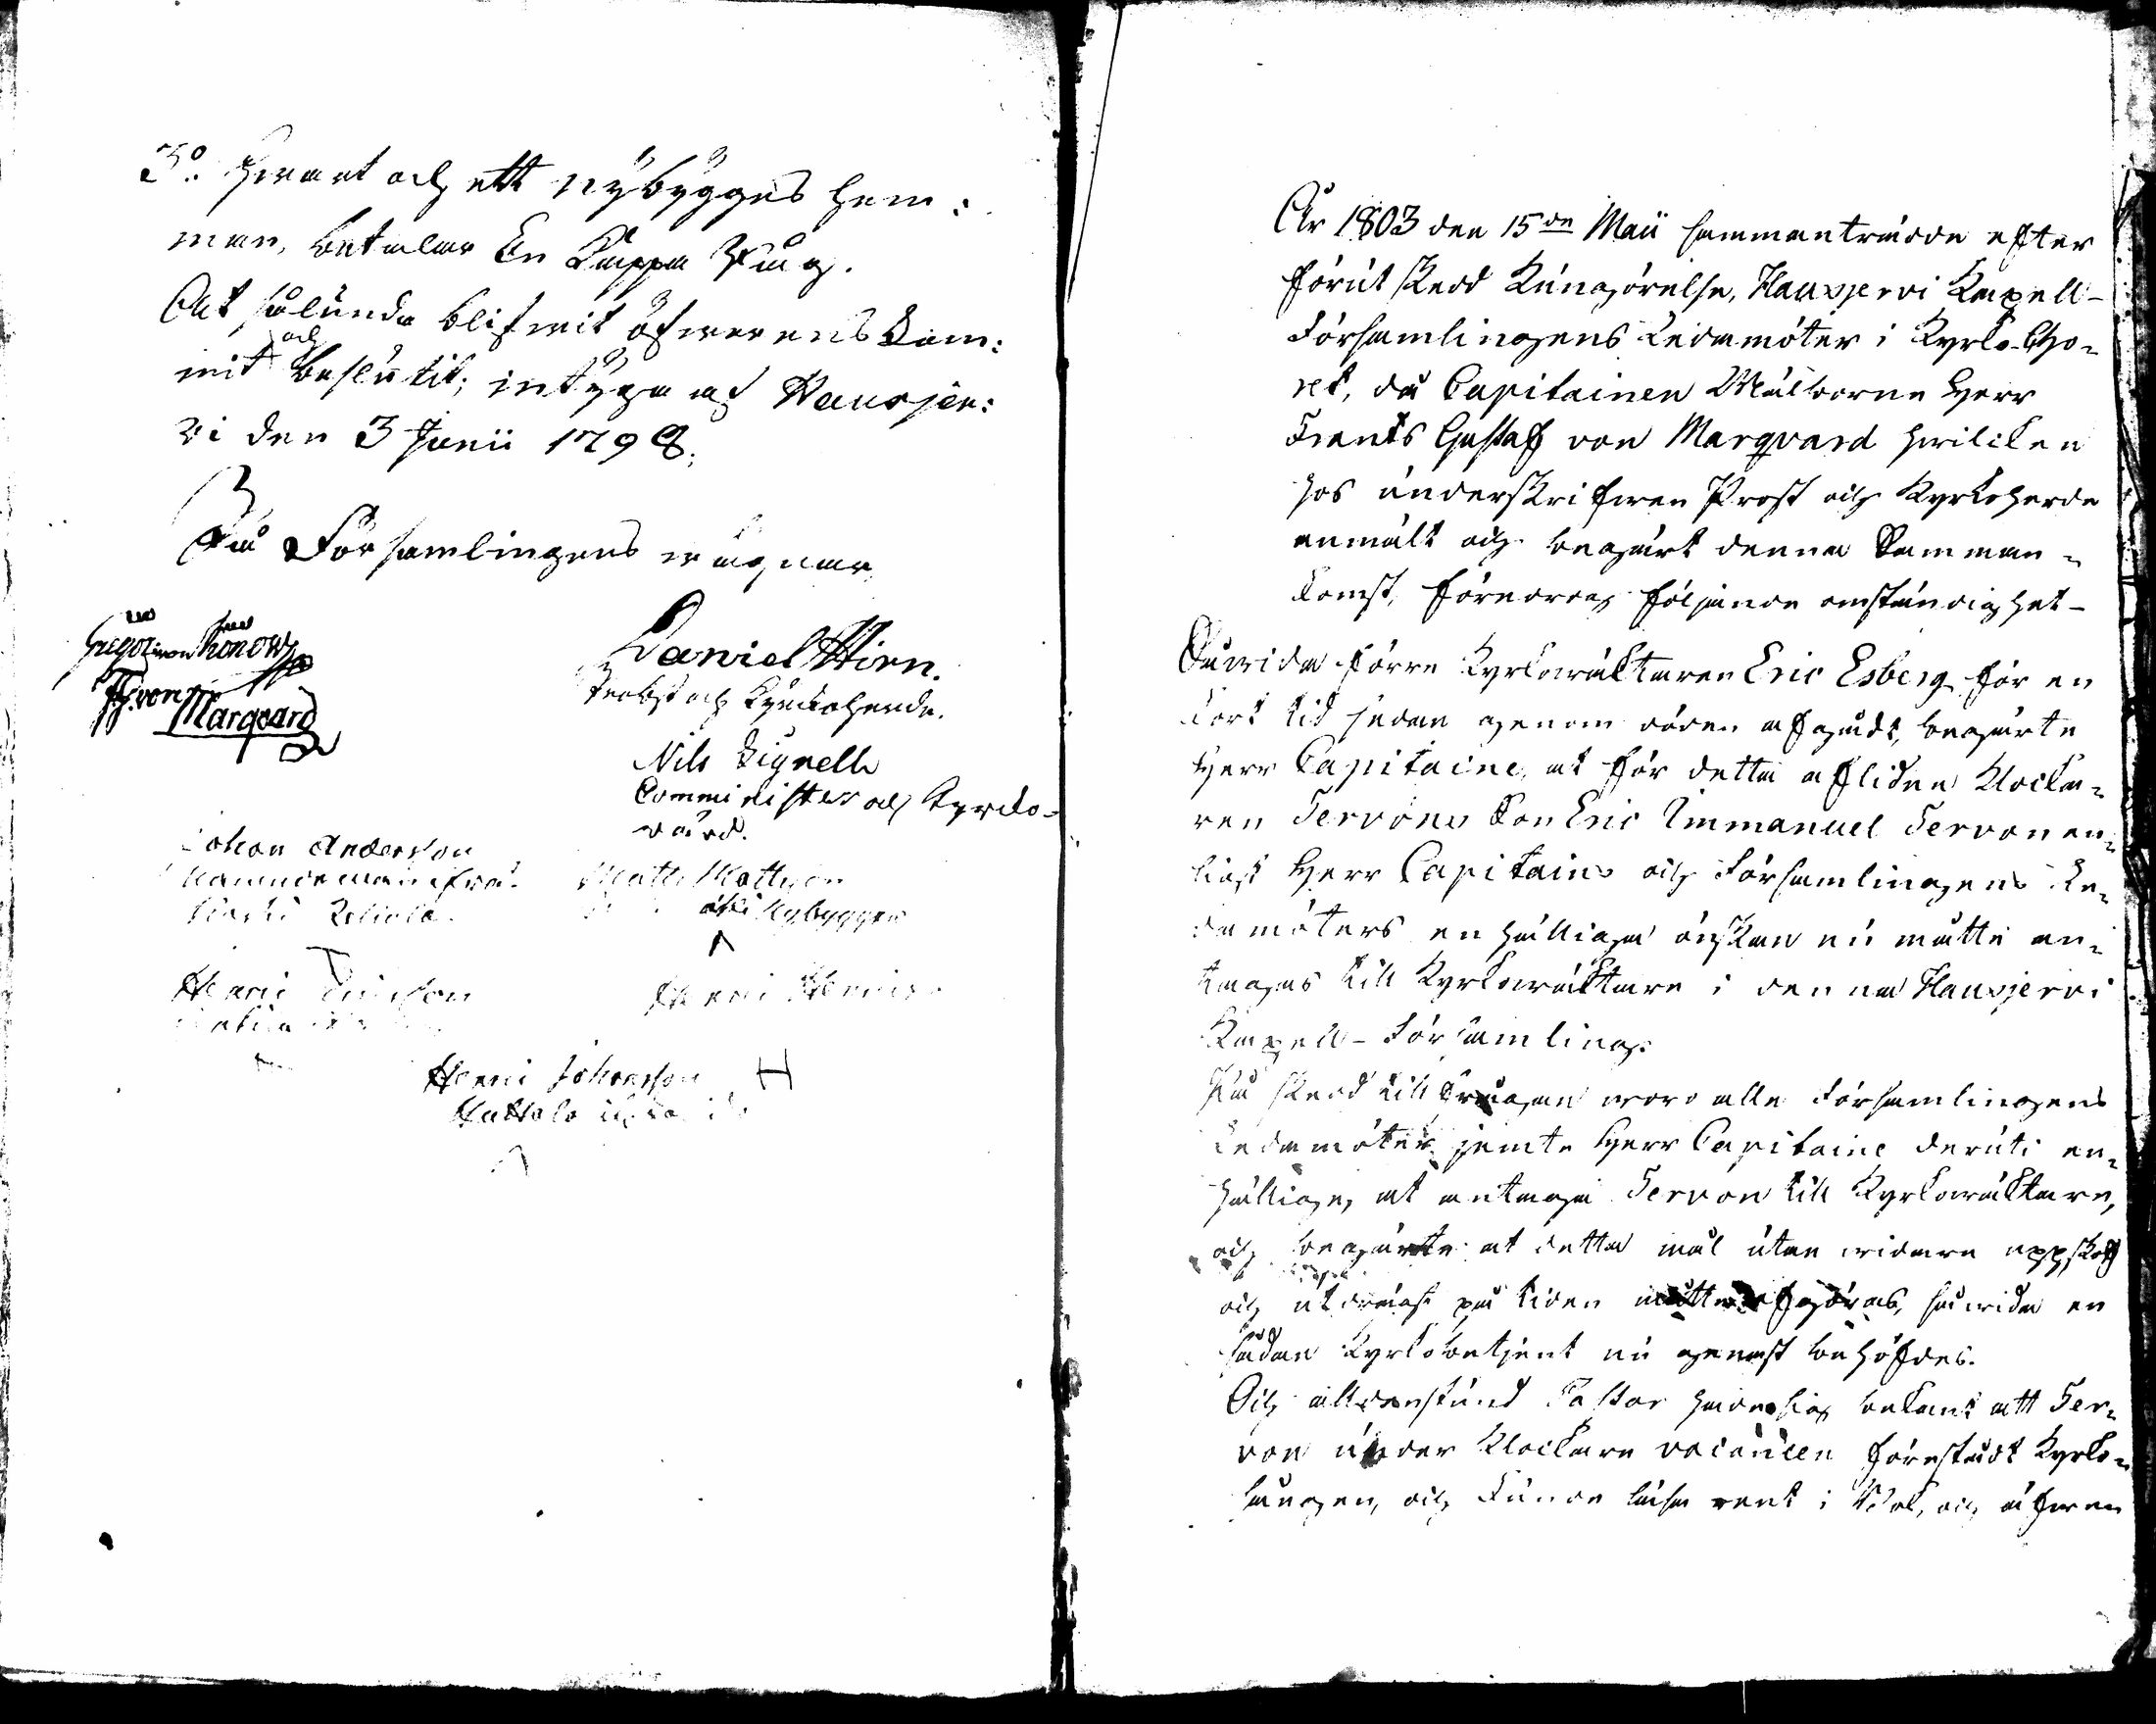 3:o Hwart och ett nybygges hem:
man, betalar En Kappa Råg.
Att sålunda blifwit öfwerens kom:
mit och beslutit; intygas af Hausjer:
vi den 3 Junii 1798.
På Församlingens wägnar
Gregori von Konow
von
Marqvard
Daniel Hirn.
Probst och Kyrckoherde.
Nils Lignell
Comminister och Kyrko-
värd.
Johan Andersson
Matts Mattsson
Nybyggare
Henric
Henric
Henric Johansson
Hattola
År 1803 den 15de Maii sammanträdde efter
förut skedd Kungörelse, Hausjervi Kapell-
Församlingens Ledamöter i Kyrko-Cho-
ret, då Capitainen Wälborne Herr
Frants Gustaf von Marqvard hwilcken
hos underskrifwen Prost och Kyrkoherde
anmält och begärt denna Samman-
komst, föredrog följande omständighet-
Såwida förre Kyrkowäktaren Eric Esberg för en
kort tid sedan genom döden afgådt, begärte
Herr Capitaine, at för detta aflidne Klocka-
ren Servons Son Eric Immanuel Servon en-
ligt Herr Capitains och Församlingens Le-
damöters enhälliga önskan nu måtte an-
tagas till Kyrkowäktare i denna Hausjervi
Kapell-Församling.
På skedd tillfrågan woro alle Församlingens
Ledamöter jemte Herr Capitaine deruti en-
hällige, at antaga Servon till Kyrkowäktare,
och begärte at detta mål utan widare uppskof
och utdrägt på tiden måtte afgöras, såwida en
sådan Kyrkobetjent nu genast behöfdes.
Och alldenstund Pastor hade sig bekant att Ser-
von under Klockare vacancen förestådt Kyrko-
sången, och kunde läsa rent i Bok, och äfwen